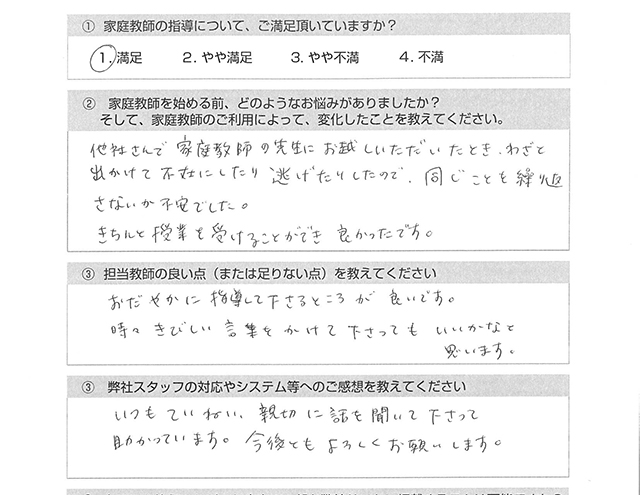 ① 家庭教師の指導について、ご満足頂いていますか？
1. 満足　2. やや満足　3. やや不満　4. 不満
② 家庭教師を始める前、どのようなお悩みがありましたか？
そして、家庭教師のご利用によって、変化したことを教えてください。
他社さんで家庭教師の先生にお越しいただいたとき、わざと
出かけて不在にしたり逃げたりしたので、同じことを繰り返
さないか不安でした。
きちんと授業を受けることができ良かったです。
③ 担当教師の良い点（または足りない点）を教えてください
おだやかに指導して下さるところが良いです。
時々きびしい言葉をかけて下さってもいいかなと
思います。
③ 弊社スタッフの対応やシステム等へのご感想を教えてください
いつもていねい、親切に話を聞いて下さって
助かっています。今後ともよろしくお願いします。